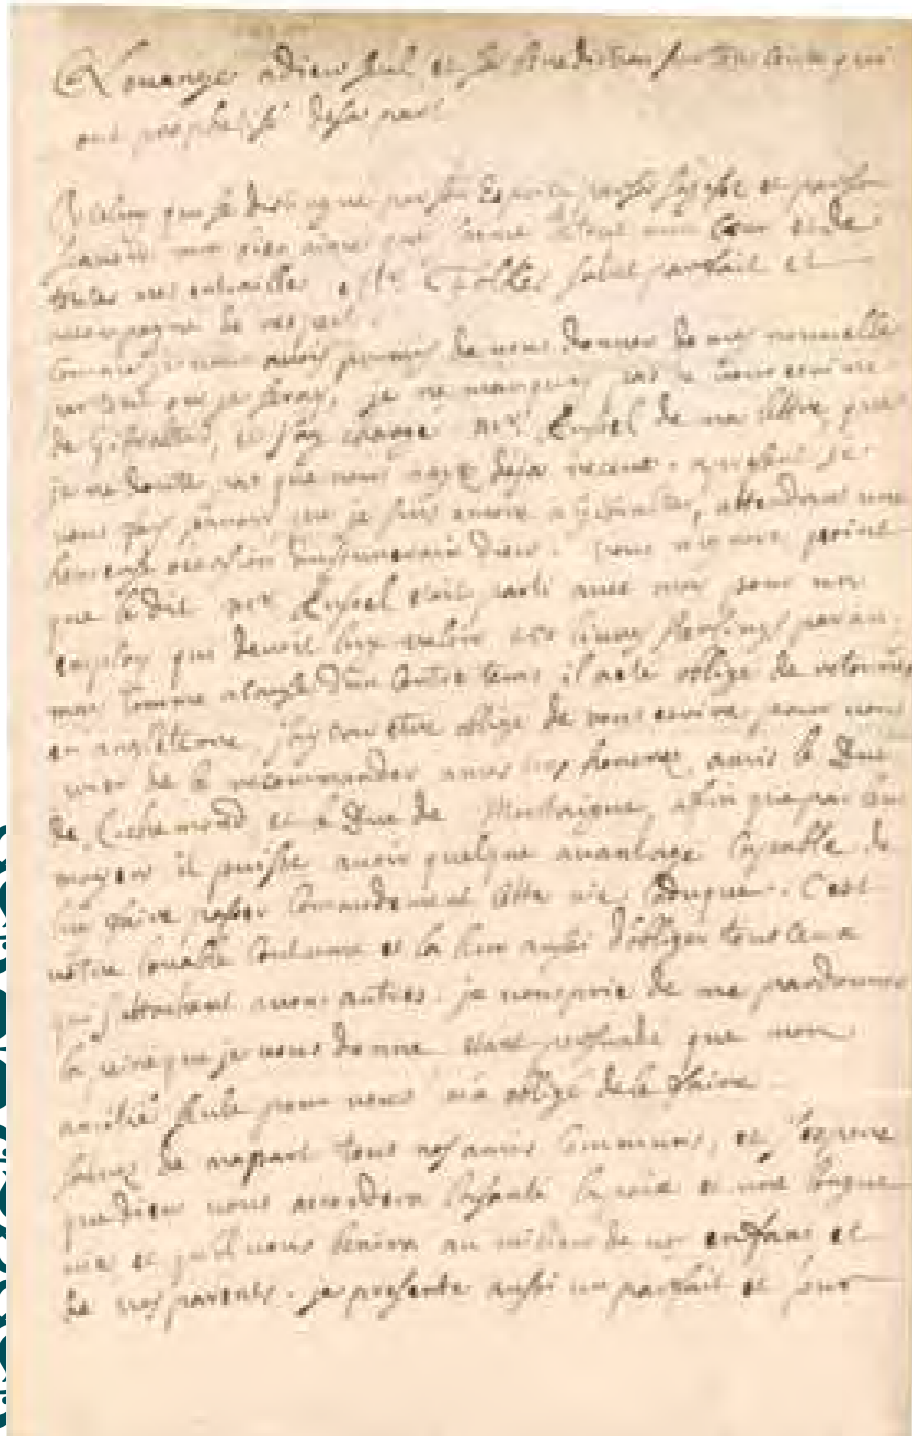 Louange à dieu seul et sa benediction sur tous ceux qui
ont prophetisé de sa part
A celuy qui se distingue par son Esprit par sa sagesse et par son
mon bien aimé que j'aime de tout mon Coeur et de
toutes mes entrailles, Mr. Folkes salut parfait et
accompagné de respect.
Comme je vous avois promis de vous donner de mes nouvelle
par tout que je seray, je ne manquay pas de vous ecrire
de Gibraltar, et j'ay chargé Mr. de ma lettre, que
je ne doute pas que vous ayez deja receue. apresent je
vous fay scavoir que je suis encore a Gibraltar, attendant une
heureuse occasion Dieu. vous n'ignorez point
que le dit Mr. etoit parti avec moy pour un
employ qui devoit luy valoir livres sterlings par an.
mais comme a cause d'un contre tems il a eté obligé de retourner
en angleterre, j'ay cru etre obligé de vous ecrire pour vous
prier de le recommander avec honneur, le Duc
de Richemond, et le Duc de Montaigue, afin que par leur
moyen il puisse avoir quelque avantage capable de
luy faire passer Commodement cette vie Caduque. C'est
votre louable Coutume et la leur aussi d'obliger tous ceux
qui s'attachent a vous autres. je vous prie de me pardonner
la peine que je vous donne etant persuadé que mon
amitié seule pour vous m'a obligé de le faire
saluez de ma part tous nos amis Communs, et j'espere
que Dieu vous accordera la santé la paix et une longue
vie et qu'il vous benira au milieu de vos enfans et
de vos parents. je presente aussi un parfait et